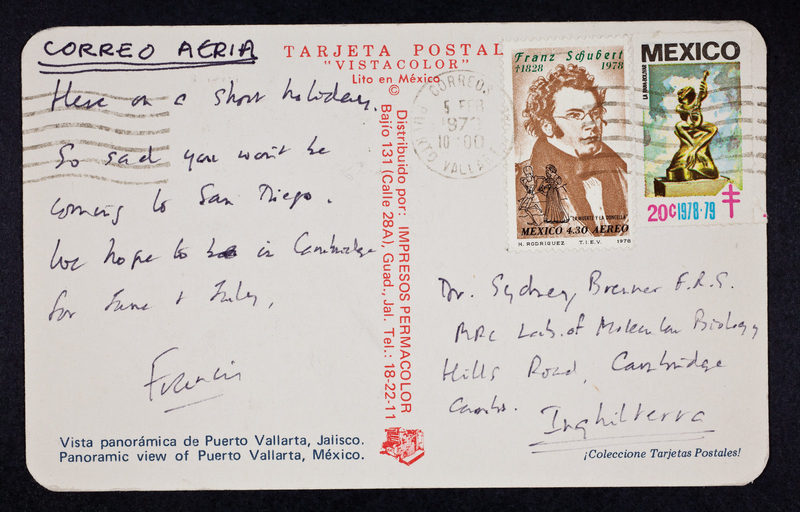 CORREO AERIA
TARJETA POSTAL
"VISTACOLOR"
Lito en México
©
Here on a short holiday.
So sad you won't be
coming to San Diego.
We hope to be in Cambridge
for June & July,
Francis
Vista panorámica de Puerto Vallarta, Jalisco.
Panoramic view of Puerto Vallarta, México.
Distribuido por: IMPRESOS PERMACOLOR
Bajío 131 (Calle 28A), Guad., Jal. Tel.: 18-22-11
CORREOS
5 FEB
197
10:00
PUERTO VALLARTA
Franz Schubert
†1828 1978
LA MUERTE Y LA DONCELLA
MEXICO 4.30 AEREO
H. RODRIGUEZ T.I.E.V. 1978
MEXICO
20c 1978-79
Dr. Sydney Brenner F.R.S.
MRC Lab. of Molecular Biology
Hills Road, Cambridge
Cambs.
Inghilterra
¡Coleccione Tarjetas Postales!